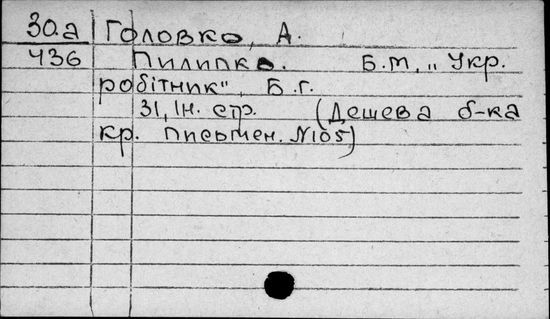 30.а Головко, А.
436 Пилипко. Б.м, „Укр.
робітник", Б.г.
31, Ін. стр. (Дешева б-ка
кр. письмен. N105)